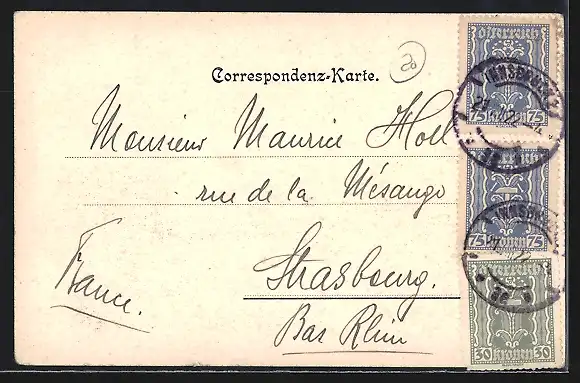 20
Correspondenz-Karte.
Monsieur Maurice Holl
rue de la Mésange
Strasbourg.
Bas Rhin
France.
Österreich
75 75
INNSBRUCK
Österreich
75 Kronen 75
INNSBRUCK
Österreich
30 Kronen 30